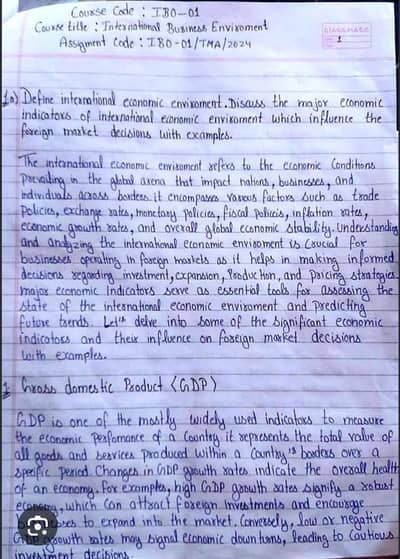 Course Code : IBO-01
Course title : International Business Enviroment
Assigment Code : IBO-01/TMA/2024
classmate
1
1a) Define international economic enviroment. Discuss the major economic
indicators of international economic enviroment which influence the
foreign market decisions with examples.
The international economic enviroment refers to the economic Conditions
Prevailing in the global arena that impact nations, businesses, and
individuals across borders. it encompasses various factors such as trade
Policies, exchange rates, monetary policies, fiscal policies, inflation rates,
economic growth rates, and overall global economic stability. Understanding
and analyzing the international economic enviroment is Crucial for
businesses operating in foreign markets as it helps in making informed
decisions regarding investment, expansion, Production, and pricing strategies.
major economic Indicators serve as essential tools for assessing the
state of the international economic enviroment and Predicting
future trends. Let's delve into some of the Significant economic
indicators and their influence on foreign market decisions
with examples.
1. Gross domestic Product (GDP)
GDP is one of the mostly widely used indicators to measure
the economic Perfomance of a Country. it represents the total value of
all goods and Services Produced within a Country's borders over a
specific Period. Changes in GDP growth rates indicate the overall health
of an economy. For examples, high GDP growth rates signify a robust
economy, which Can attract foreign investments and encourage
to expand into the market. Conversely, low or negative
GDP growth rates may signal economic down turns, leading to Cautious
investment decisions.